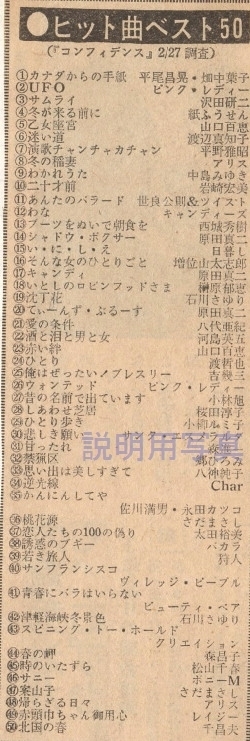 ●ヒット曲ベスト50
(『コンフィデンス』2/27 調査)
①カナダからの手紙 平尾昌晃・畑中葉子
②UFO ピンク・レディー
③サムライ 沢田研二
④冬が来る前に 紙ふうせん
⑤乙女座宮 山口百恵
⑥迷い道 渡辺真知子
⑦演歌チャンチャカチャン 平野雅昭
⑧冬の稲妻 アリス
⑨わかれうた 中島みゆき
⑩二十才前 岩崎宏美
⑪あんたのバラード 世良公則&ツイスト
⑫わな キャンディーズ
⑬ブーツをぬいで朝食を 西城秀樹
⑭シャドウ・ボクサー 原田真二
⑮い・に・し・え 日暮し
⑯そんな女のひとりごと 増位山太志郎
⑰キャンディ 原田真二
⑱いとしのロビンフッドさま 榊原郁恵
⑲沈丁花 石川さゆり
⑳てぃーんず・ぶるーす 原田真二
㉑愛の条件 八代亜紀
㉒酒と泪と男と女 河島英五
㉓赤い絆 山口百恵
㉔ひとり 渡哲也
㉕俺はぜったい!プレスリー 吉幾三
㉖ウォンテッド ピンク・レディー
㉗昔の名前で出ています 小林旭
㉘しあわせ芝居 桜田淳子
㉙ひとり歩き 小柳ルミ子
㉚悲しき願い サンタ・エスメラルダ
㉛甘ったれ 森
㉜禁猟区 郷ひろみ
㉝思い出は美しすぎて 八神純子
㉞逆光線 Char
㉟かんにんしてや
佐川満男・永田カツコ
㊱桃花源 さだまさし
㊲恋人たちの100の偽り 太田裕美
㊳誘惑のブギー バカラ
㊴若き旅人 狩人
㊵サンフランシスコ
ヴィレッジ・ピープル
㊶青春にバラはいらない
ビューティ・ペア
㊷津軽海峡冬景色 石川さゆり
㊸スピニング・トー・ホールド
クリエイション
㊹春の岬 森昌子
㊺時のいたずら 松山千春
㊻サニー ボニーM
㊼案山子 さだまさし
㊽帰らざる日々 アリス
㊾赤頭巾ちゃん御用心 レイジー
㊿北国の春 千昌夫
説明用写真